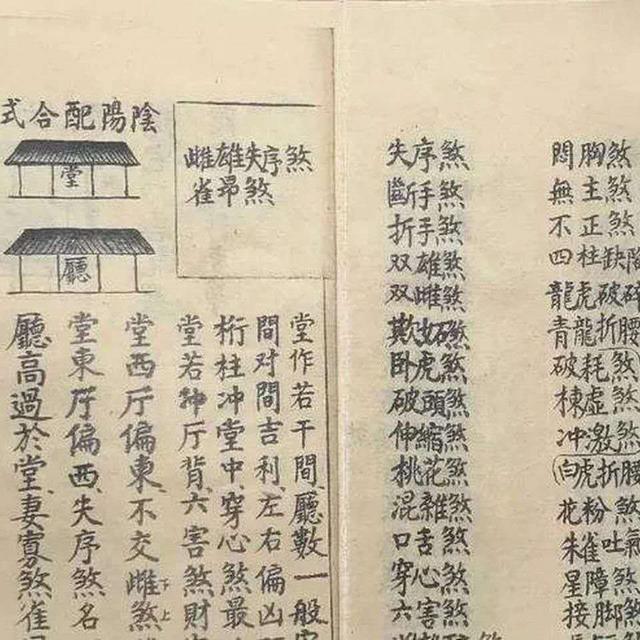 陰陽配合式
堂
廳
雌雄失序煞
雀昴煞
堂作若干間、廳數一般
間对間吉利、左右偏凶
桁柱冲堂中、穿心煞最
堂若神厅背、六害煞財
堂西厅偏東、不交雌煞
堂東厅偏西、失序煞名
廳高過於堂、妻寡煞雀
失序煞
斷手煞
折手煞
双雄煞
双雌煞
欺奴煞
卧虎煞
破頭煞
伸縮煞
桃花煞
混雜煞
口舌煞
穿心煞
六害煞
悶胸煞
無主煞
不正煞
四柱缺陷
龍虎破碎
青龍折腰
破耗煞
棟虛煞
冲激煞
白虎折腰
花粉煞
朱雀吐氣
星障煞
接脚煞